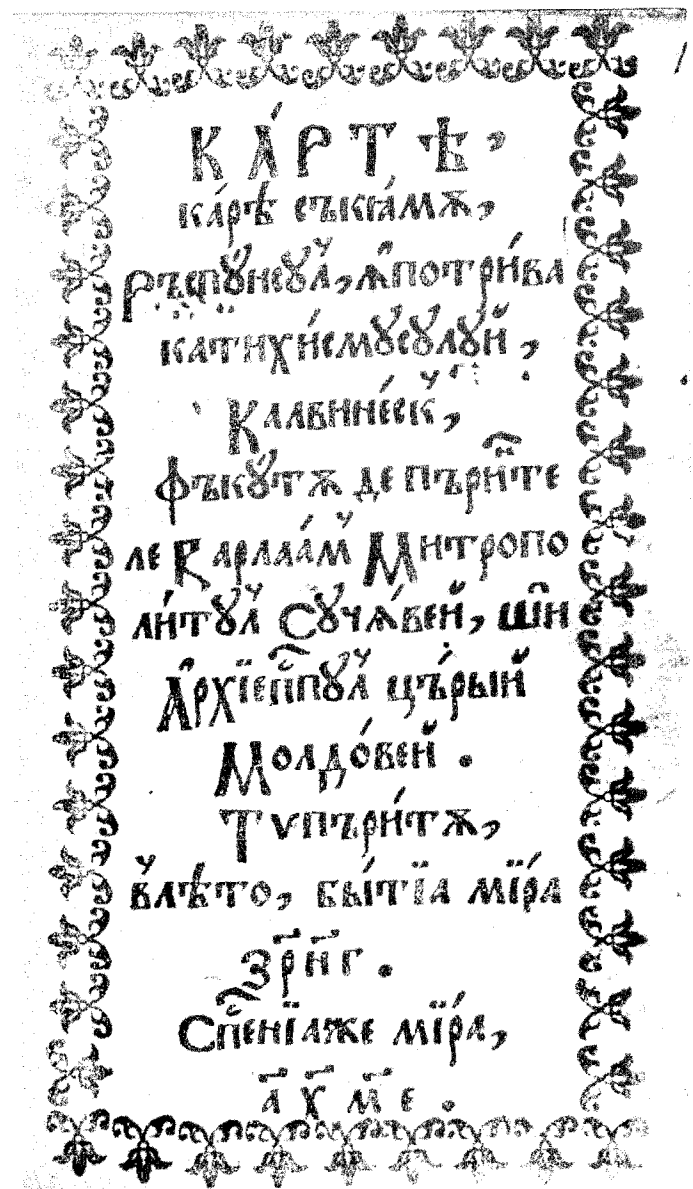 КА́РТѢ,
ка́рѣ съкꙗ́мѫ,
Ръспꙋ́нсꙋл҆, ꙟ҆потри́ва
катихи́смꙋсꙋлꙋй,
Калвине́ск҆,
фъкꙋ́тѫ де пъри́нте
ле Варлаа́м҆ Митропо
ли́тꙋл҆ Сꙋчѧ́вей, ши̑
А҆рхїепⷭ҇пꙋл҆ цъ́рый
Молдо́вей.
Тѵпъри́тѫ,
в҆лѣто, бы́тїа мїра
ЗР҃Н҃Г.
Сп҃сенїаже мїра,
а҃ х҃ м҃ е.